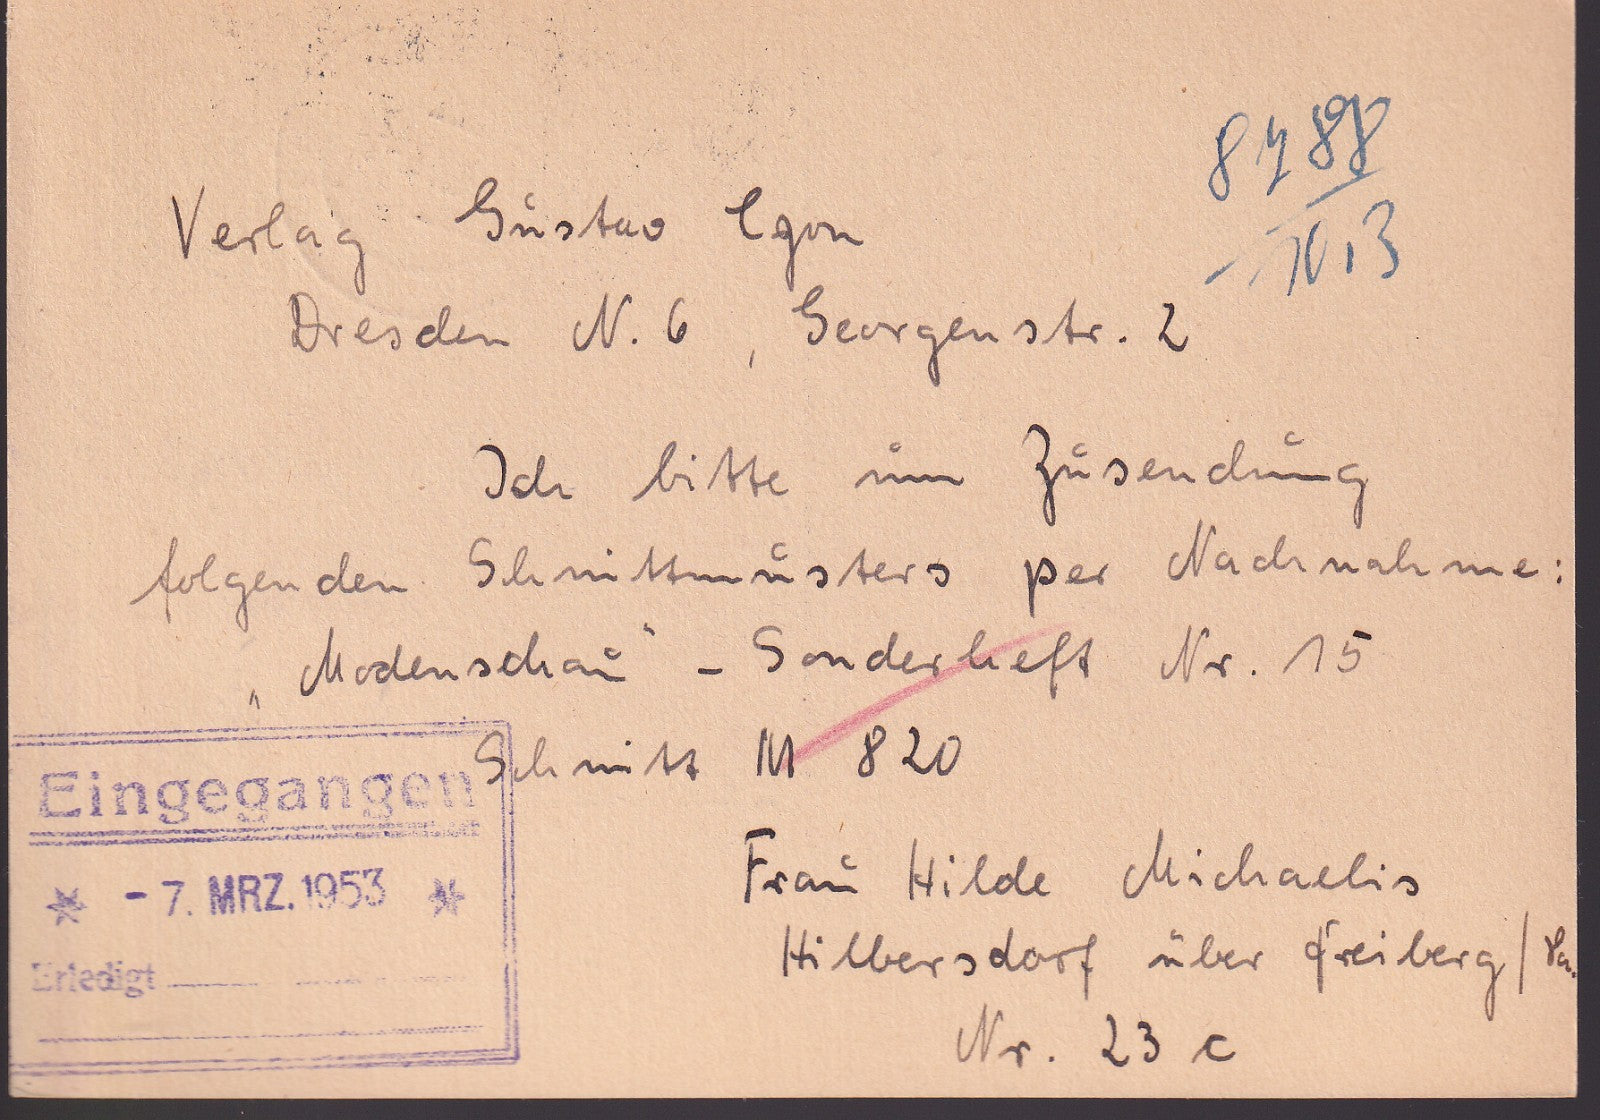 8788
10.3
Verlag Gustav Lyon
Dresden N. 6, Georgenstr. 2
Ich bitte um Zusendung
folgenden Schnittmusters per Nachnahme:
„Modenschau“ – Sonderheft Nr. 15
Schnitt M 820
Frau Hilde Michaelis
Hilbersdorf über Freiberg / Sa.
Nr. 23 c
Eingegangen
* - 7. MRZ. 1953 *
Erledigt